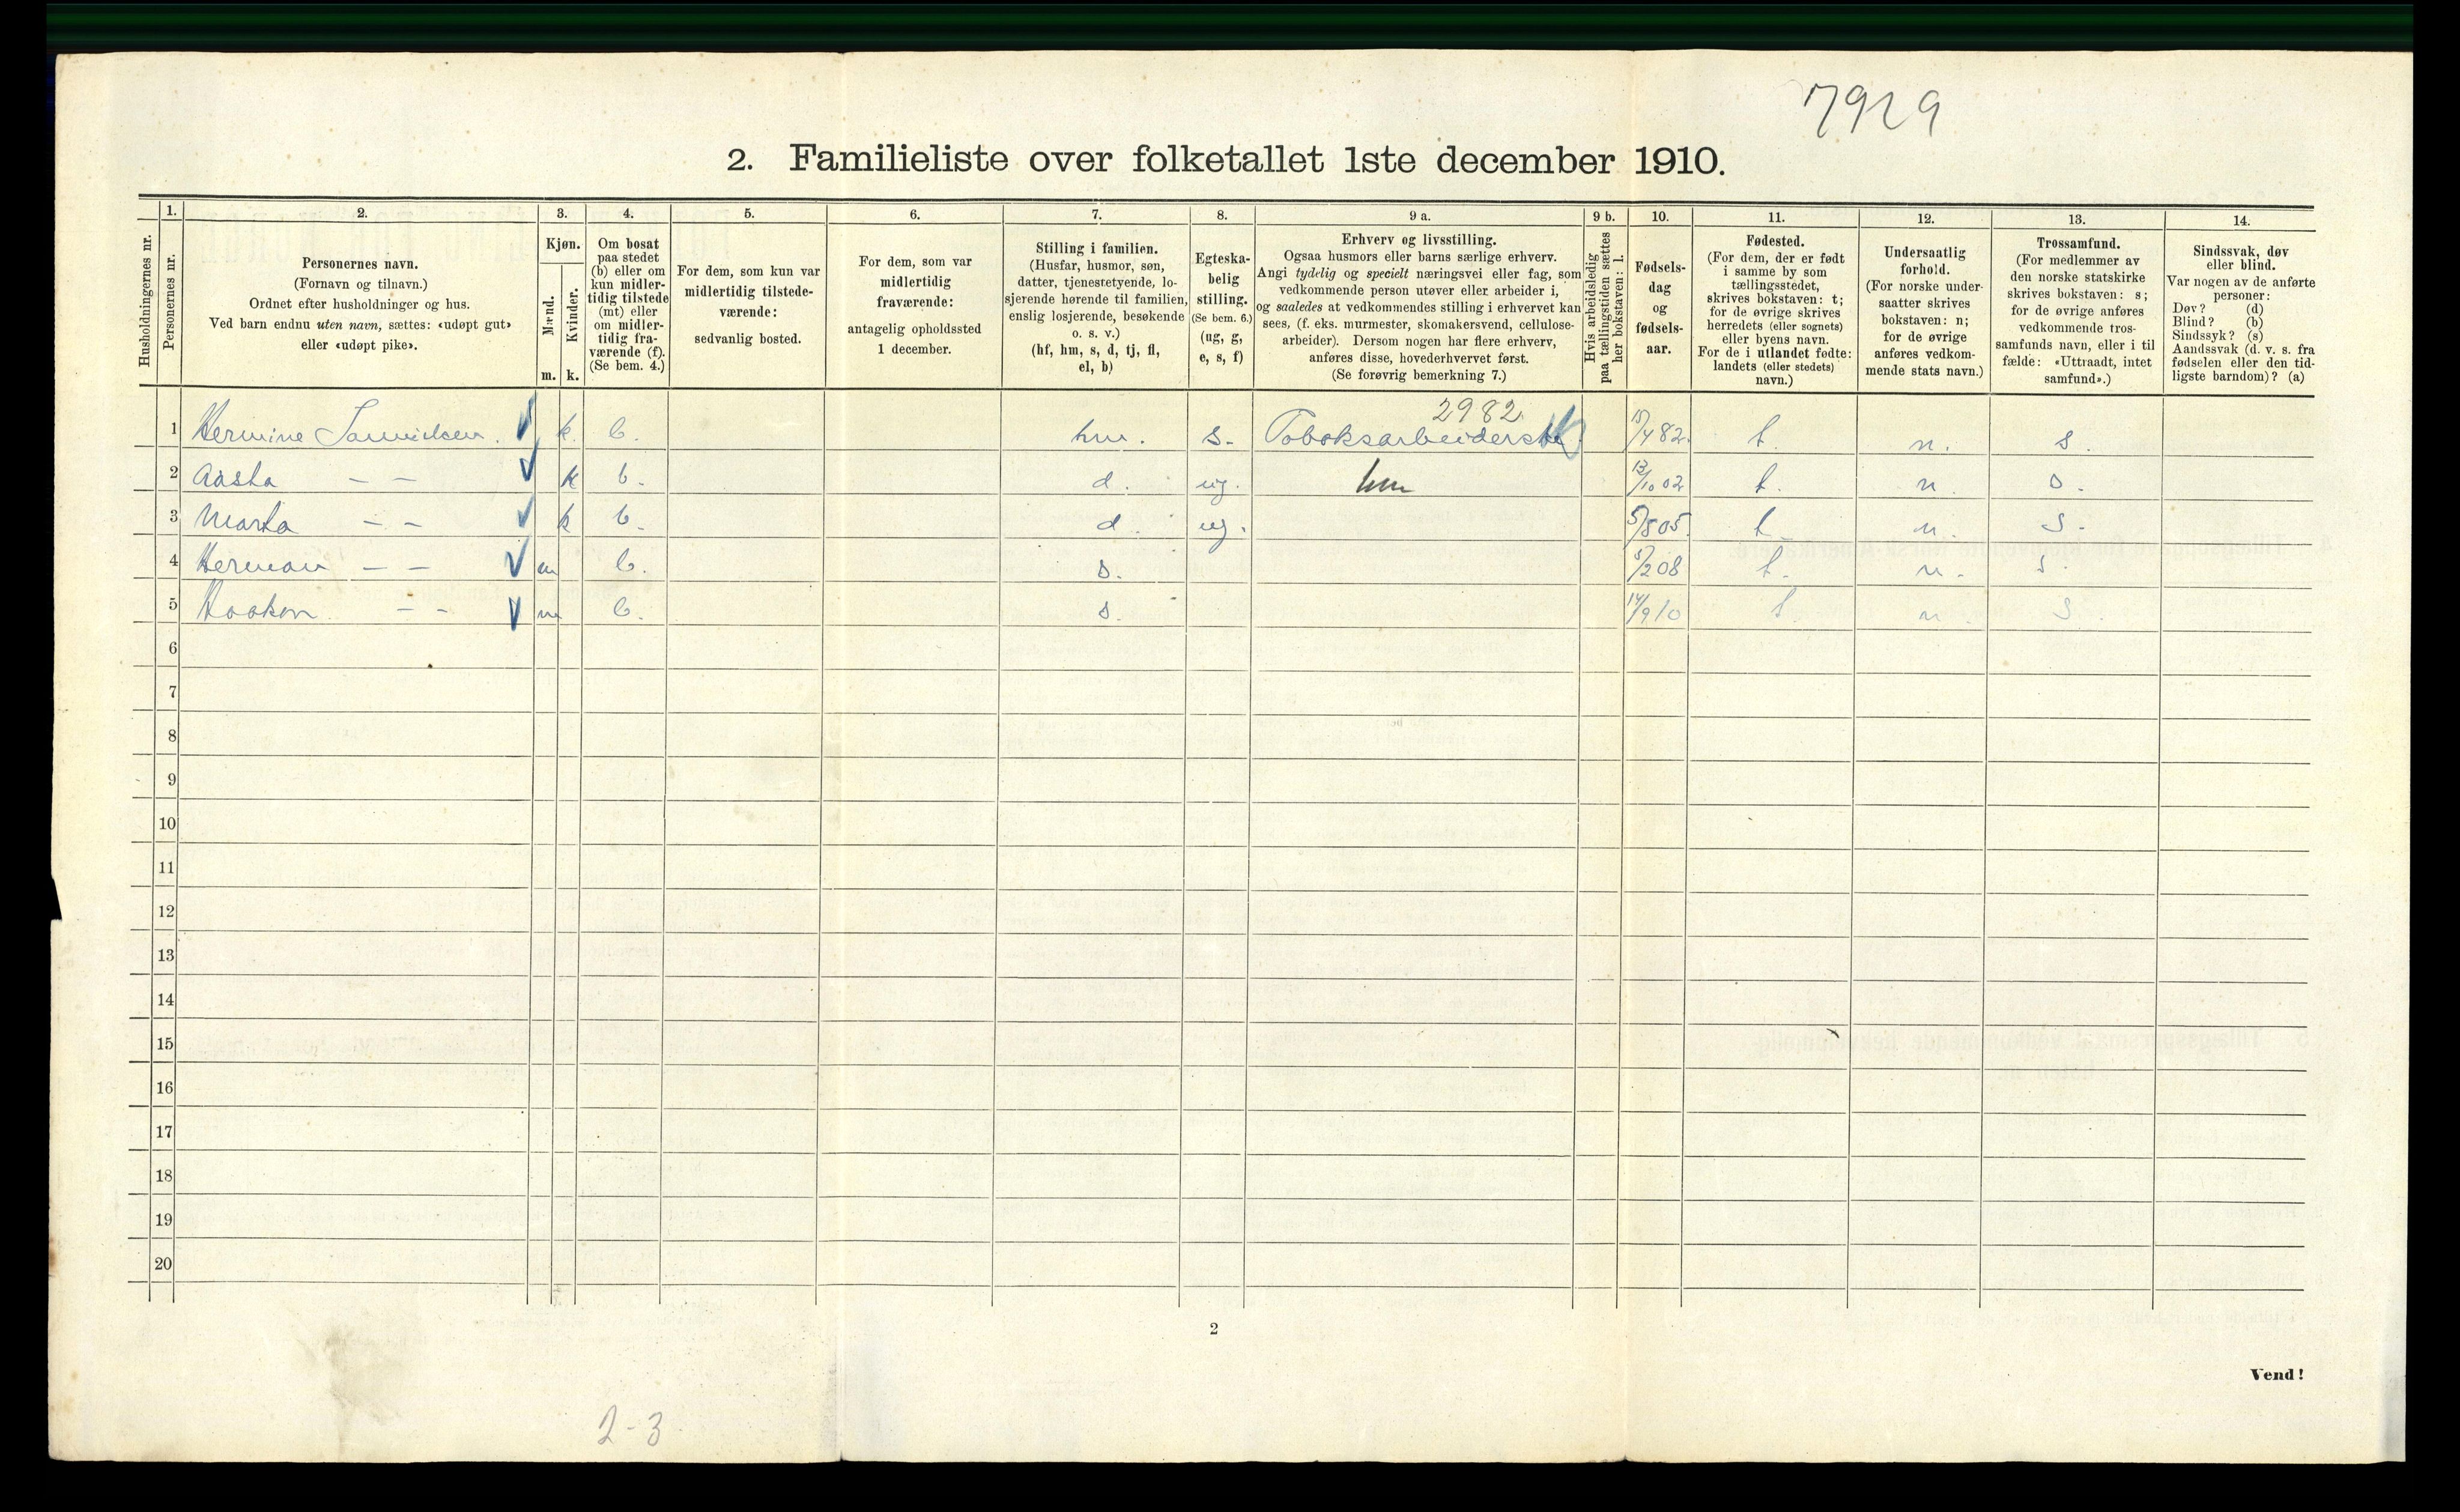 7929
2. Familieliste over folketallet 1ste december 1910.
Husholdningernes nr.
1.
Personernes nr.
2.
Personernes navn.
(Fornavn og tilnavn.)
Ordnet efter husholdninger og hus.
Ved barn endnu uten navn, sættes: «udøpt gut»
eller «udøpt pike».
3.
Kjøn.
Mænd.
m.
Kvinder.
k.
4.
Om bosat
paa stedet
(b) eller om
kun midler-
tidig tilstede
(mt) eller
om midler-
tidig fra-
værende (f).
(Se bem. 4.)
5.
For dem, som kun var
midlertidig tilstede-
værende:
sedvanlig bosted.
6.
For dem, som var
midlertidig
fraværende:
antagelig opholdssted
1 december.
7.
Stilling i familien.
(Husfar, husmor, søn,
datter, tjenestetyende, lo-
sjerende hørende til familien,
enslig losjerende, besøkende
o. s. v.)
(hf, hm, s, d, tj, fl,
el, b)
8.
Egteska-
belig
stilling.
(Se bem. 6.)
(ug, g,
e, s, f)
9 a.
Erhverv og livsstilling.
Ogsaa husmors eller barns særlige erhverv.
Angi tydelig og specielt næringsvei eller fag, som
vedkommende person utøver eller arbeider i,
og saaledes at vedkommendes stilling i erhvervet kan
sees, (f. eks. murmester, skomakersvend, cellulose-
arbeider). Dersom nogen har flere erhverv,
anføres disse, hovederhvervet først.
(Se forøvrig bemerkning 7.)
9 b.
Hvis arbeidsledig
paa tællingstiden sættes
her bokstaven: l.
10.
Fødsels-
dag
og
fødsels-
aar.
11.
Fødested.
(For dem, der er født
i samme by som
tællingsstedet,
skrives bokstaven: t;
for de øvrige skrives
herredets (eller sognets)
eller byens navn.
For de i utlandet fødte:
landets (eller stedets)
navn.)
12.
Undersaatlig
forhold.
(For norske under-
saatter skrives
bokstaven: n;
for de øvrige
anføres vedkom-
mende stats navn.)
13.
Trossamfund.
(For medlemmer av
den norske statskirke
skrives bokstaven: s;
for de øvrige anføres
vedkommende tros-
samfunds navn, eller i til
fælde: «Uttraadt, intet
samfund».)
14.
Sindssvak, døv
eller blind.
Var nogen av de anførte
personer:
Døv? (d)
Blind? (b)
Sindssyk? (s)
Aandssvak (d. v. s. fra
fødselen eller den tid-
ligste barndom)? (a)
2982
1 Hermine Samuelsen. k. b. hm. s. Toboksarbeiderske 15/4 82. t. n. s.
2 Aasta — — k b. d. ug. hm 13/10 02 t. n. s.
3 Marta — — k b. d. ug. 5/8 05 t n. s.
4 Herman — — m b. s. 5/2 08 t. n. s.
5 Haakon — — m b. s. 14/9 10 t. n. s.
6
7
8
9
10
11
12
13
14
15
16
17
18
19
20
2
Vend!
2-3